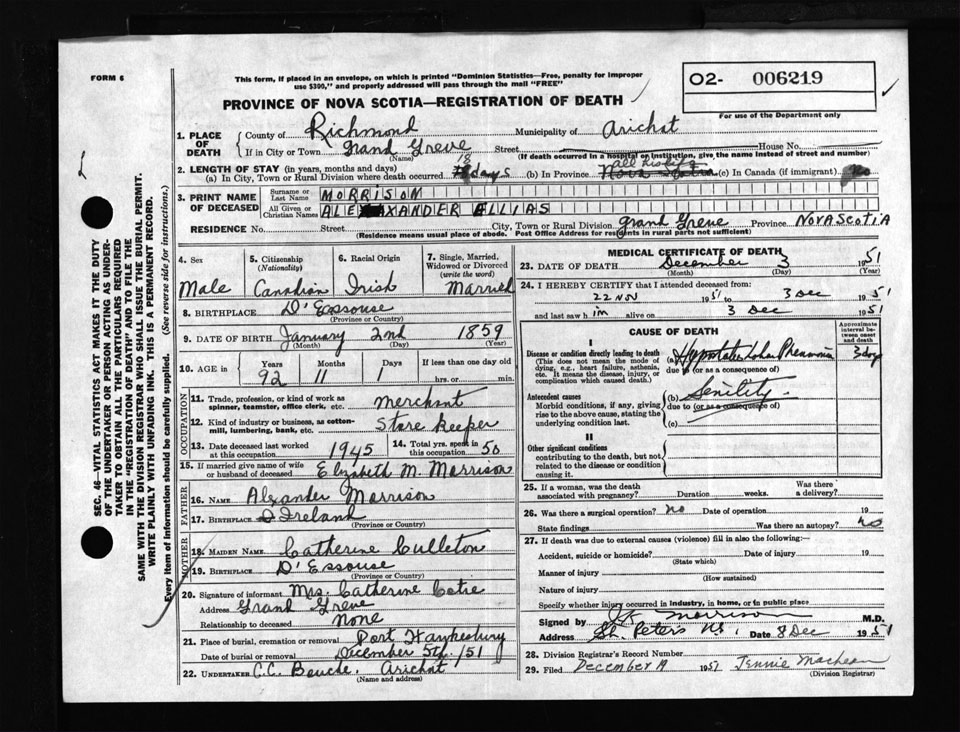 FORM 6
This form, if placed in an envelope, on which is printed "Dominion Statistics—Free, penalty for improper
use $300," and properly addressed will pass through the mail "FREE"
O2- 006219
For use of the Department only
PROVINCE OF NOVA SCOTIA—REGISTRATION OF DEATH
1. PLACE OF DEATH County of Richmond Municipality of Arichat
If in City or Town Grand Greve Street House No.
(Name) (If death occurred in a hospital or institution, give the name instead of street and number)
2. LENGTH OF STAY (in years, months and days) 18 all his life
(a) In City, Town or Rural Division where death occurred days (b) In Province Nova Scotia (c) In Canada (if immigrant) no
3. PRINT NAME OF DECEASED Surname or Last Name MORRISON
All Given or Christian Names ALEXANDER ALLIAS
RESIDENCE No. Street City, Town or Rural Division Grand Greve Province NOVA SCOTIA
(Residence means usual place of abode. Post Office Address for residents in rural parts not sufficient)
SEC. 46—VITAL STATISTICS ACT MAKES IT THE DUTY
OF THE UNDERTAKER OR PERSON ACTING AS UNDER-
TAKER TO OBTAIN ALL THE PARTICULARS REQUIRED
IN THE "REGISTRATION OF DEATH" AND TO FILE THE
SAME WITH THE DIVISION REGISTRAR WHO SHALL ISSUE THE BURIAL PERMIT.
WRITE PLAINLY WITH UNFADING INK. THIS IS A PERMANENT RECORD.
Every item of information should be carefully supplied. (See reverse side for instructions.)
4. Sex
Male
5. Citizenship
(Nationality)
Canadian
6. Racial Origin
Irish
7. Single, Married,
Widowed or Divorced
(write the word)
Married
8. BIRTHPLACE D'Essouse
(Province or Country)
9. DATE OF BIRTH January 2nd 1859
(Month) (Day) (Year)
10. AGE in Years Months Days If less than one day
92 11 1 hrs. or min.
OCCUPATION
11. Trade, profession, or kind of work as
spinner, teamster, office clerk, etc. merchant
12. Kind of industry or business, as cotton-
mill, lumbering, bank, etc. Store Keeper
13. Date deceased last worked
at this occupation 1945
14. Total yrs. spent in
this occupation 50
15. If married give name of wife
or husband of deceased Elizabeth M. Morrison
FATHER
16. NAME Alxander Morrison
17. BIRTHPLACE Ireland
(Province or Country)
MOTHER
18. MAIDEN NAME Catherine Culleton
19. BIRTHPLACE D'Essouse
(Province or Country)
20. Signature of informant Mrs. Catherine Cotie
Address Grand Greve
Relationship to deceased None
21. Place of burial, cremation or removal Port Hawkesbury
Date of burial or removal December 5th /51
22. UNDERTAKER C.C. Bouche. Arichat
(Name and address)
MEDICAL CERTIFICATE OF DEATH
23. DATE OF DEATH December 3 1951
(Month) (Day) (Year)
24. I HEREBY CERTIFY that I attended deceased from:
22 NOV 1951 to 3 Dec 1951
and last saw h im alive on 3 Dec 1951
CAUSE OF DEATH
Approximate
interval be-
tween onset
and death
I
Disease or condition directly leading to death
(This does not mean the mode of
dying, e.g., heart failure, asthenia,
etc. It means the disease, injury, or
complication which caused death.)
(a) Lobar Pneumonia 3 days
due to (or as a consequence of)
Antecedent causes
Morbid conditions, if any, giving
rise to the above cause, stating the
underlying condition last.
(b) Senility
due to (or as a consequence of)
(c)
II
Other significant conditions
contributing to the death, but not
related to the disease or condition
causing it.
25. If a woman, was the death
associated with pregnancy? Duration weeks. Was there
a delivery?
26. Was there a surgical operation? no Date of operation 19
State findings Was there an autopsy? no
27. If death was due to external causes (violence) fill in also the following:—
Accident, suicide or homicide? Date of injury 19
(State which)
Manner of injury
(How sustained)
Nature of injury
Specify whether injury occurred in industry, in home, or in public place
Signed by Morrison M.D.
Address St. Peters NS. Date 8 Dec 1951
28. Division Registrar's Record Number
29. Filed December 1951 Jennie MacLean
(Division Registrar)